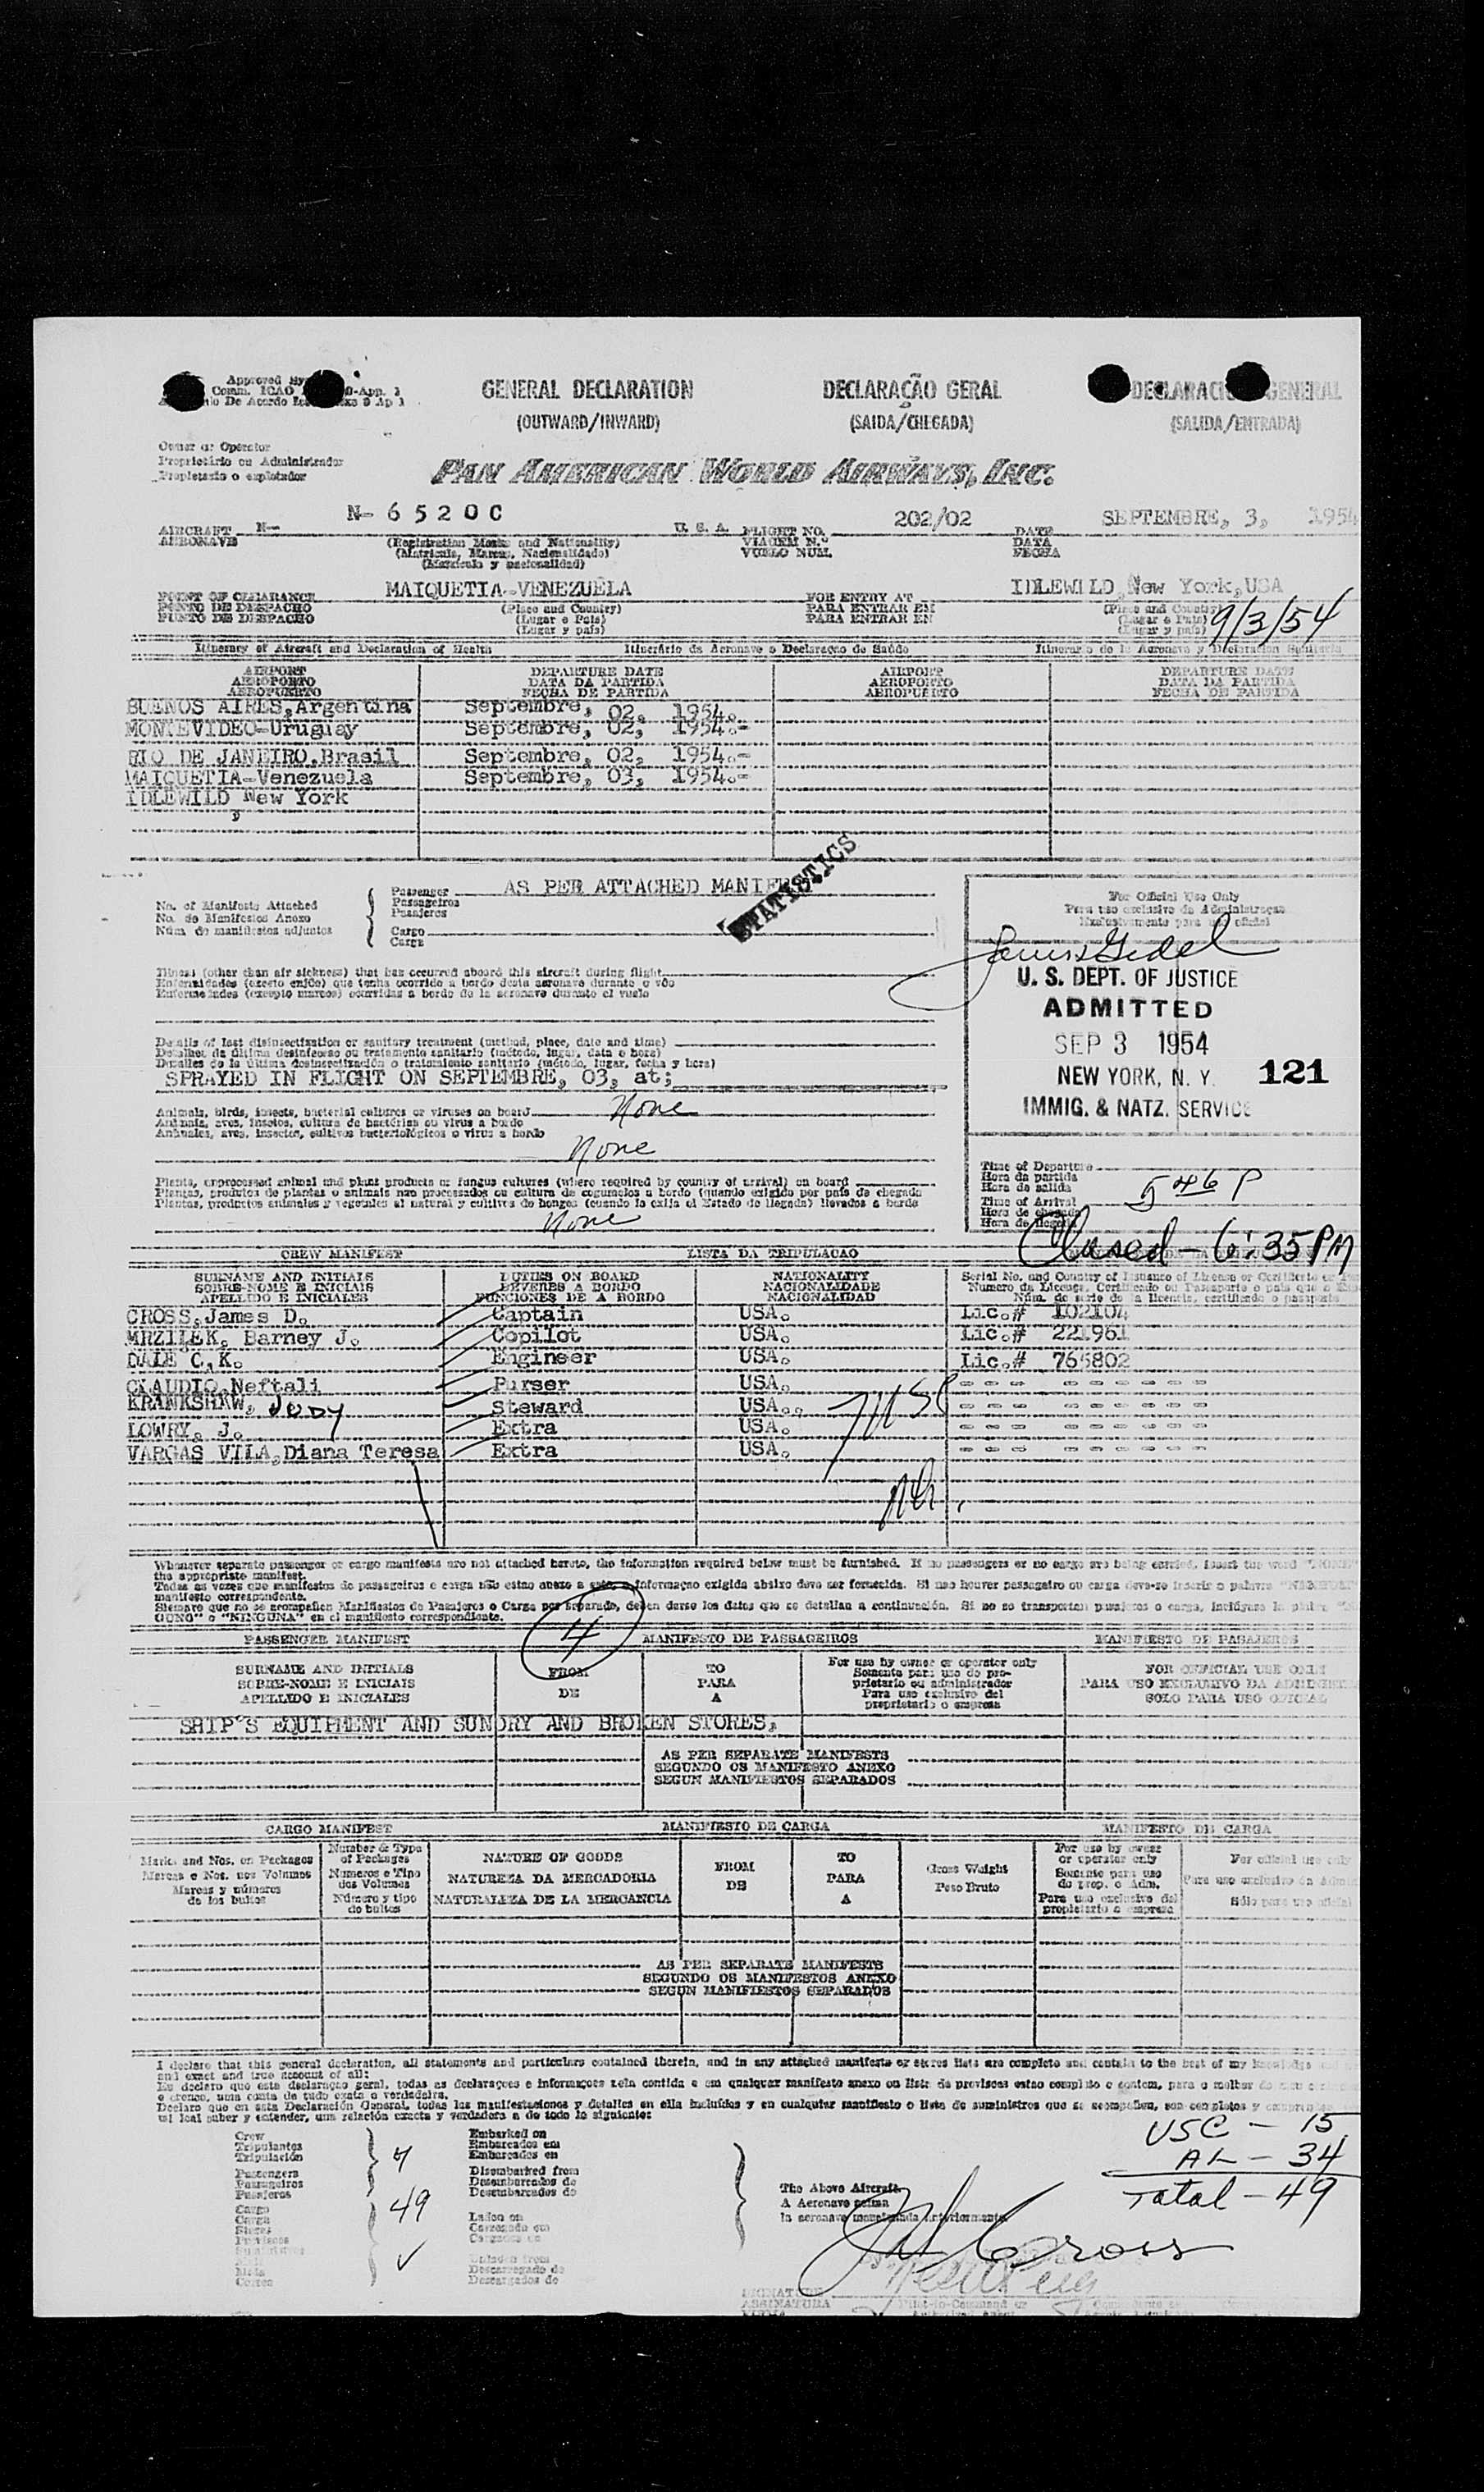 GENERAL DECLARATION
(OUTWARD/INWARD)
DECLARAÇÃO GERAL
(SAIDA/CHEGADA)
GENERAL
(SALIDA/ENTRADA)
Approved By
Comm. ICAO
De Acordo
Owner or Operator
Proprietário ou Administrador
Propietario o explotador
PAN AMERICAN WORLD AIRWAYS, INC.
AIRCRAFT N- N- 6 5 2 0 C U. S. A. FLIGHT NO. 202/02 DATE SEPTEMBRE, 3, 1954
AERONAVE (Registration Marks and Nationality) VIAGEM N.º DATA
(Matricula, Marcas, Nacionalidade) VUELO NUM. FECHA
(Matrícula y nacionalidad)
POINT OF CLEARANCE MAIQUETIA-VENEZUELA FOR ENTRY AT IDLEWILD, New York, USA
PONTO DE DESPACHO (Place and Country) PARA ENTRAR EM (Place and Country)
PUNTO DE DESPACHO (Lugar e Pais) PARA ENTRAR EN (Lugar e Pais)
(Lugar y país) (Lugar y país)
9/3/54
Itinerary of Aircraft and Declaration of Health Itinerário da Aeronave e Declaração de Saúde Itinerario de la Aeronave y Declaracion Sanitaria
AIRPORT DEPARTURE DATE AIRPORT DEPARTURE DATE
AEROPORTO DATA DA PARTIDA AEROPORTO DATA DA PARTIDA
AEROPUERTO FECHA DE PARTIDA AEROPUERTO FECHA DE PARTIDA
BUENOS AIRES, Argentina Septembre, 02, 1954.
MONTEVIDEO-Uruguay Septembre, 02, 1954.-
RIO DE JANEIRO, Brasil Septembre, 02, 1954.-
MAIQUETIA-Venezuela Septembre, 03, 1954.-
IDLEWILD New York
,
STATISTICS
No. of Manifests Attached
No. de Manifestos Anexo
Núm. de manifiestos adjuntos
Passenger AS PER ATTACHED MANIF
Passageiros
Pasajeros
Cargo
Carga
For Official Use Only
Para uso exclusivo da Administraçao
Exclusivamente para uso oficial
U. S. DEPT. OF JUSTICE
ADMITTED
SEP 3 1954
NEW YORK, N. Y. 121
IMMIG. & NATZ. SERVICE
Illness (other than air sickness) that has occurred aboard this aircraft during flight
Enfermidades (exceto enjôo) que tenha ocorrido a bordo desta aeronave durante o vôo
Enfermedades (excepto mareos) ocurridas a bordo de la aeronave durante el vuelo
Details of last disinsectization or sanitary treatment (method, place, date and time)
Detalhes da última desinfecsao ou tratamento sanitario (método, lugar, data e hora)
Detalles de la última desinsectización o tratamiento sanitario (método, lugar, fecha y hora)
SPRAYED IN FLIGHT ON SEPTEMBRE, 03, at;
Animals, birds, insects, bacterial cultures or viruses on board None
Animais, aves, insetos, cultura de bactérias ou virus a bordo
Animales, aves, insectos, cultivos bacteriológicos o virus a bordo
None
Plants, unprocessed animal and plant products or fungus cultures (where required by country of arrival) on board
Plantas, produtos de plantas o animais nao processados ou cultura de cogumelos a bordo (quando exigido por pais de chegada
Plantas, productos animales y vegetales al natural y cultivos de hongos (cuando lo exija el Estado de llegada) llevados a bordo
None
Time of Departure
Hora da partida
Hora de salida
Time of Arrival 5 46 P
Hora de chegada
Hora de llegada
Closed - 6:35 PM
CREW MANIFEST LISTA DA TRIPULACAO
SURNAME AND INITIALS DUTIES ON BOARD NATIONALITY Serial No. and Country of Issuance of License or Certificate or
SOBRE-NOME E INICIAIS DEVERES A BORDO NACIONALIDADE Numero da Licença, Certificado ou Passaporte o pais que o
APELLIDO E INICIALES FUNCIONES DE A BORDO NACIONALIDAD Núm. de serie de la licencia, certificado o pasaporte
CROSS, James D. Captain USA. Lic.# 102104
MRZILEK, Barney J. Copilot USA. Lic.# 221961
DALE C, K. Engineer USA. Lic.# 765802
CLAUDIO, Neftali Purser USA. - - - - - - - - -
KRANKSHAW, JUDY Steward USA.. - - - - - - - - -
LOWRY, J. Extra USA. - - - - - - - - -
VARGAS VILA, Diana Teresa Extra USA. - - - - - - - - -
7 USC
Whenever separate passenger or cargo manifests are not attached hereto, the information required below must be furnished. If no passengers or no cargo are being carried, insert the word "NONE"
the appropriate manifest.
Todas as vezes que manifestos de passageiros e carga não estao anexo a este, a informaçao exigida abaixo deve ser fornecida. Si nao houver passageiro ou carga deve-se inserir o palavra
manifesto correspondente.
Siempre que no se acompañen Manifiestos de Pasajeros o Carga por Separado, deben darse los datos que se detallan a continuación. Si no se transportan pasajeros o carga, inclúyase la
GUNO" o "NINGUNA" en el manifiesto correspondiente.
4
PASSENGER MANIFEST MANIFESTO DE PASSAGEIROS MANIFIESTO DE PASAJEROS
SURNAME AND INITIALS FROM TO For use by owner or operator only FOR OFFICIAL USE ONLY
SOBRE-NOME E INICIAIS DE PARA Somente para uso de pro- PARA USO EXCLUSIVO DA
APELLIDO E INICIALES A prietario ou administrador SOLO PARA USO OFICIAL
Para uso exclusivo del
proprietario o empresa
SHIP'S EQUIPMENT AND SUNDRY AND BROKEN STORES,
AS PER SEPARATE MANIFESTS
SEGUNDO OS MANIFESTO ANEXO
SEGUN MANIFIESTOS SEPARADOS
CARGO MANIFEST MANIFIESTO DE CARGA MANIFESTO DE CARGA
Marks and Nos. on Packages Number & Type of Packages NATURE OF GOODS FROM TO Gross Weight For use by owner or operator only For official use only
Marcas e Nos. nos Volumes Numeros e Tipo dos Volumes NATUREZA DA MERCADORIA DE PARA Peso Bruto Somente para uso do prop. o Adm. Para uso exclusivo da
Marcas y números de los bultos Número y tipo de bultos NATURALEZA DE LA MERCANCIA A Para uso exclusivo del propietario o empresa Sólo para uso oficial
AS PER SEPARATE MANIFESTS
SEGUNDO OS MANIFESTOS ANEXO
SEGUN MANIFIESTOS SEPARADOS
I declare that this general declaration, all statements and particulars contained therein, and in any attached manifests or stores lists are complete and contain to the best of my knowledge
and exact and true account of all:
Eu declaro que esta declaraçao geral, todas as declaraçoes e informaçoes nela contida e em qualquer manifesto anexo ou lista de provisoes estao completo e contem, para o melhor
e crença, uma conta de tudo exata o verdadeira.
Declaro que en esta Declaración General, todas las manifestaciones y detalles en ella incluidos y en cualquier manifiesto o lista de suministros que se acompañen, son completos y
mi leal saber y entender, una relación exacta y verdadera a de todo lo siguiente:
USC - 15
AL - 34
Total - 49
Crew
Tripulantes
Tripulación
7
Passengers
Passageiros
Pasajeros
49
Cargo
Carga
Stores
✓
Embarked on
Embarcados em
Embarcados en
Disembarked from
Desembarcados de
Desembarcados de
Laden on
Carregado em
Cargados en
Unladen from
Descarregado de
Descargados de
The Above Aircraft
A Aeronave acima
la aeronave mencionada anteriormente
Cross
SIGNATURE
ASSINATURA
Pilot-in-Command or